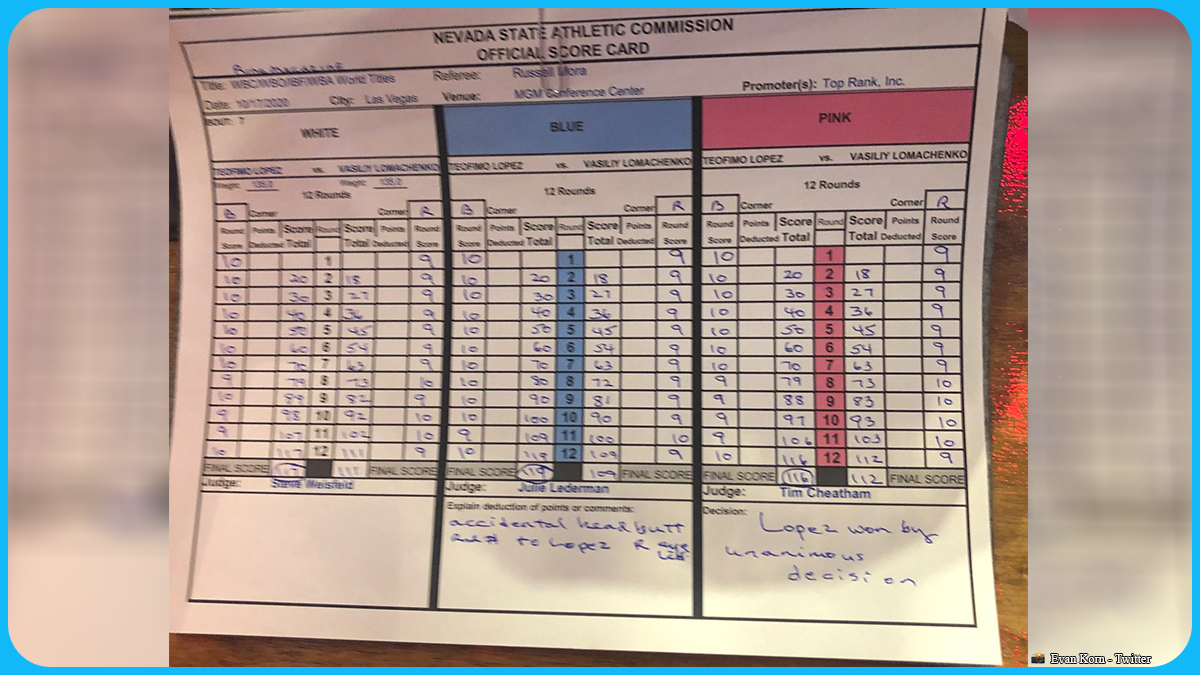 NEVADA STATE ATHLETIC COMMISSION
OFFICIAL SCORE CARD
Title: WBC/WBO/IBF/WBA World Titles Referee: Russell Mora Promoter(s): Top Rank, Inc.
Date: 10/17/2020 City: Las Vegas Venue: MGM Conference Center
Bout: 7
WHITE BLUE PINK
TEOFIMO LOPEZ vs. VASILIY LOMACHENKO TEOFIMO LOPEZ vs. VASILIY LOMACHENKO TEOFIMO LOPEZ vs. VASILIY LOMACHENKO
Weight: Weight:
12 Rounds 12 Rounds 12 Rounds
B Corner Corner R B Corner Corner R B Corner Corner R
Round Points Score Round Score Points Round Round Points Score Round Score Points Round Round Points Score Round Score Points Round
Score Deducted Total Total Deducted Score Score Deducted Total Total Deducted Score Score Deducted Total Total Deducted Score
10 1 9 10 1 9 10 1 9
10 20 2 18 9 10 20 2 18 9 10 20 2 18 9
10 30 3 27 9 10 30 3 27 9 10 30 3 27 9
10 40 4 36 9 10 40 4 36 9 10 40 4 36 9
10 50 5 45 9 10 50 5 45 9 10 50 5 45 9
10 60 6 54 9 10 60 6 54 9 10 60 6 54 9
10 70 7 63 9 10 70 7 63 9 10 70 7 63 9
9 79 8 73 10 10 80 8 72 9 9 79 8 73 10
10 89 9 82 9 10 90 9 81 9 9 88 9 83 10
9 98 10 92 10 10 100 10 90 9 9 97 10 93 10
9 107 11 102 10 9 109 11 100 10 9 106 11 103 10
10 117 12 111 9 10 119 12 109 9 10 116 12 112 9
FINAL SCORE 117 111 FINAL SCORE FINAL SCORE 119 109 FINAL SCORE FINAL SCORE 116 112 FINAL SCORE
Judge: Steve Weisfeld Judge: Julie Lederman Judge: Tim Cheatham
Explain deduction of points or comments:
accidental headbutt
to Lopez R eye
Decision:
Lopez won by
unanimous
decision
Evan Korn - Twitter